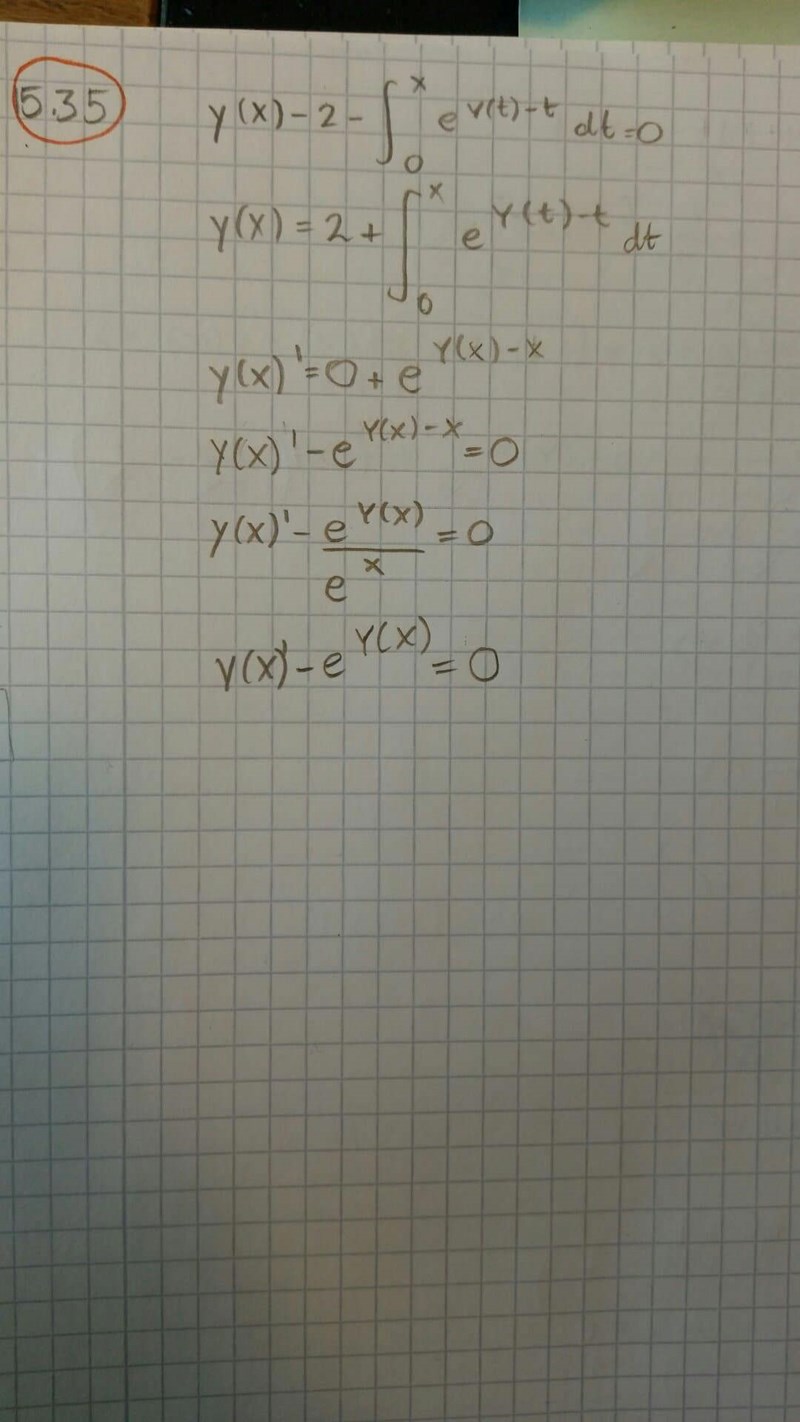 5.35
y(x) - 2 - ∫₀ˣ e^{y(t)-t} dt = 0
y(x) = 2 + ∫₀ˣ e^{y(t)-t} dt
y(x)' = 0 + e^{y(x)-x}
y(x)' - e^{y(x)-x} = 0
y(x)' - e^{y(x)}/e^x = 0
y(x)' - e^{y(x)} = 0